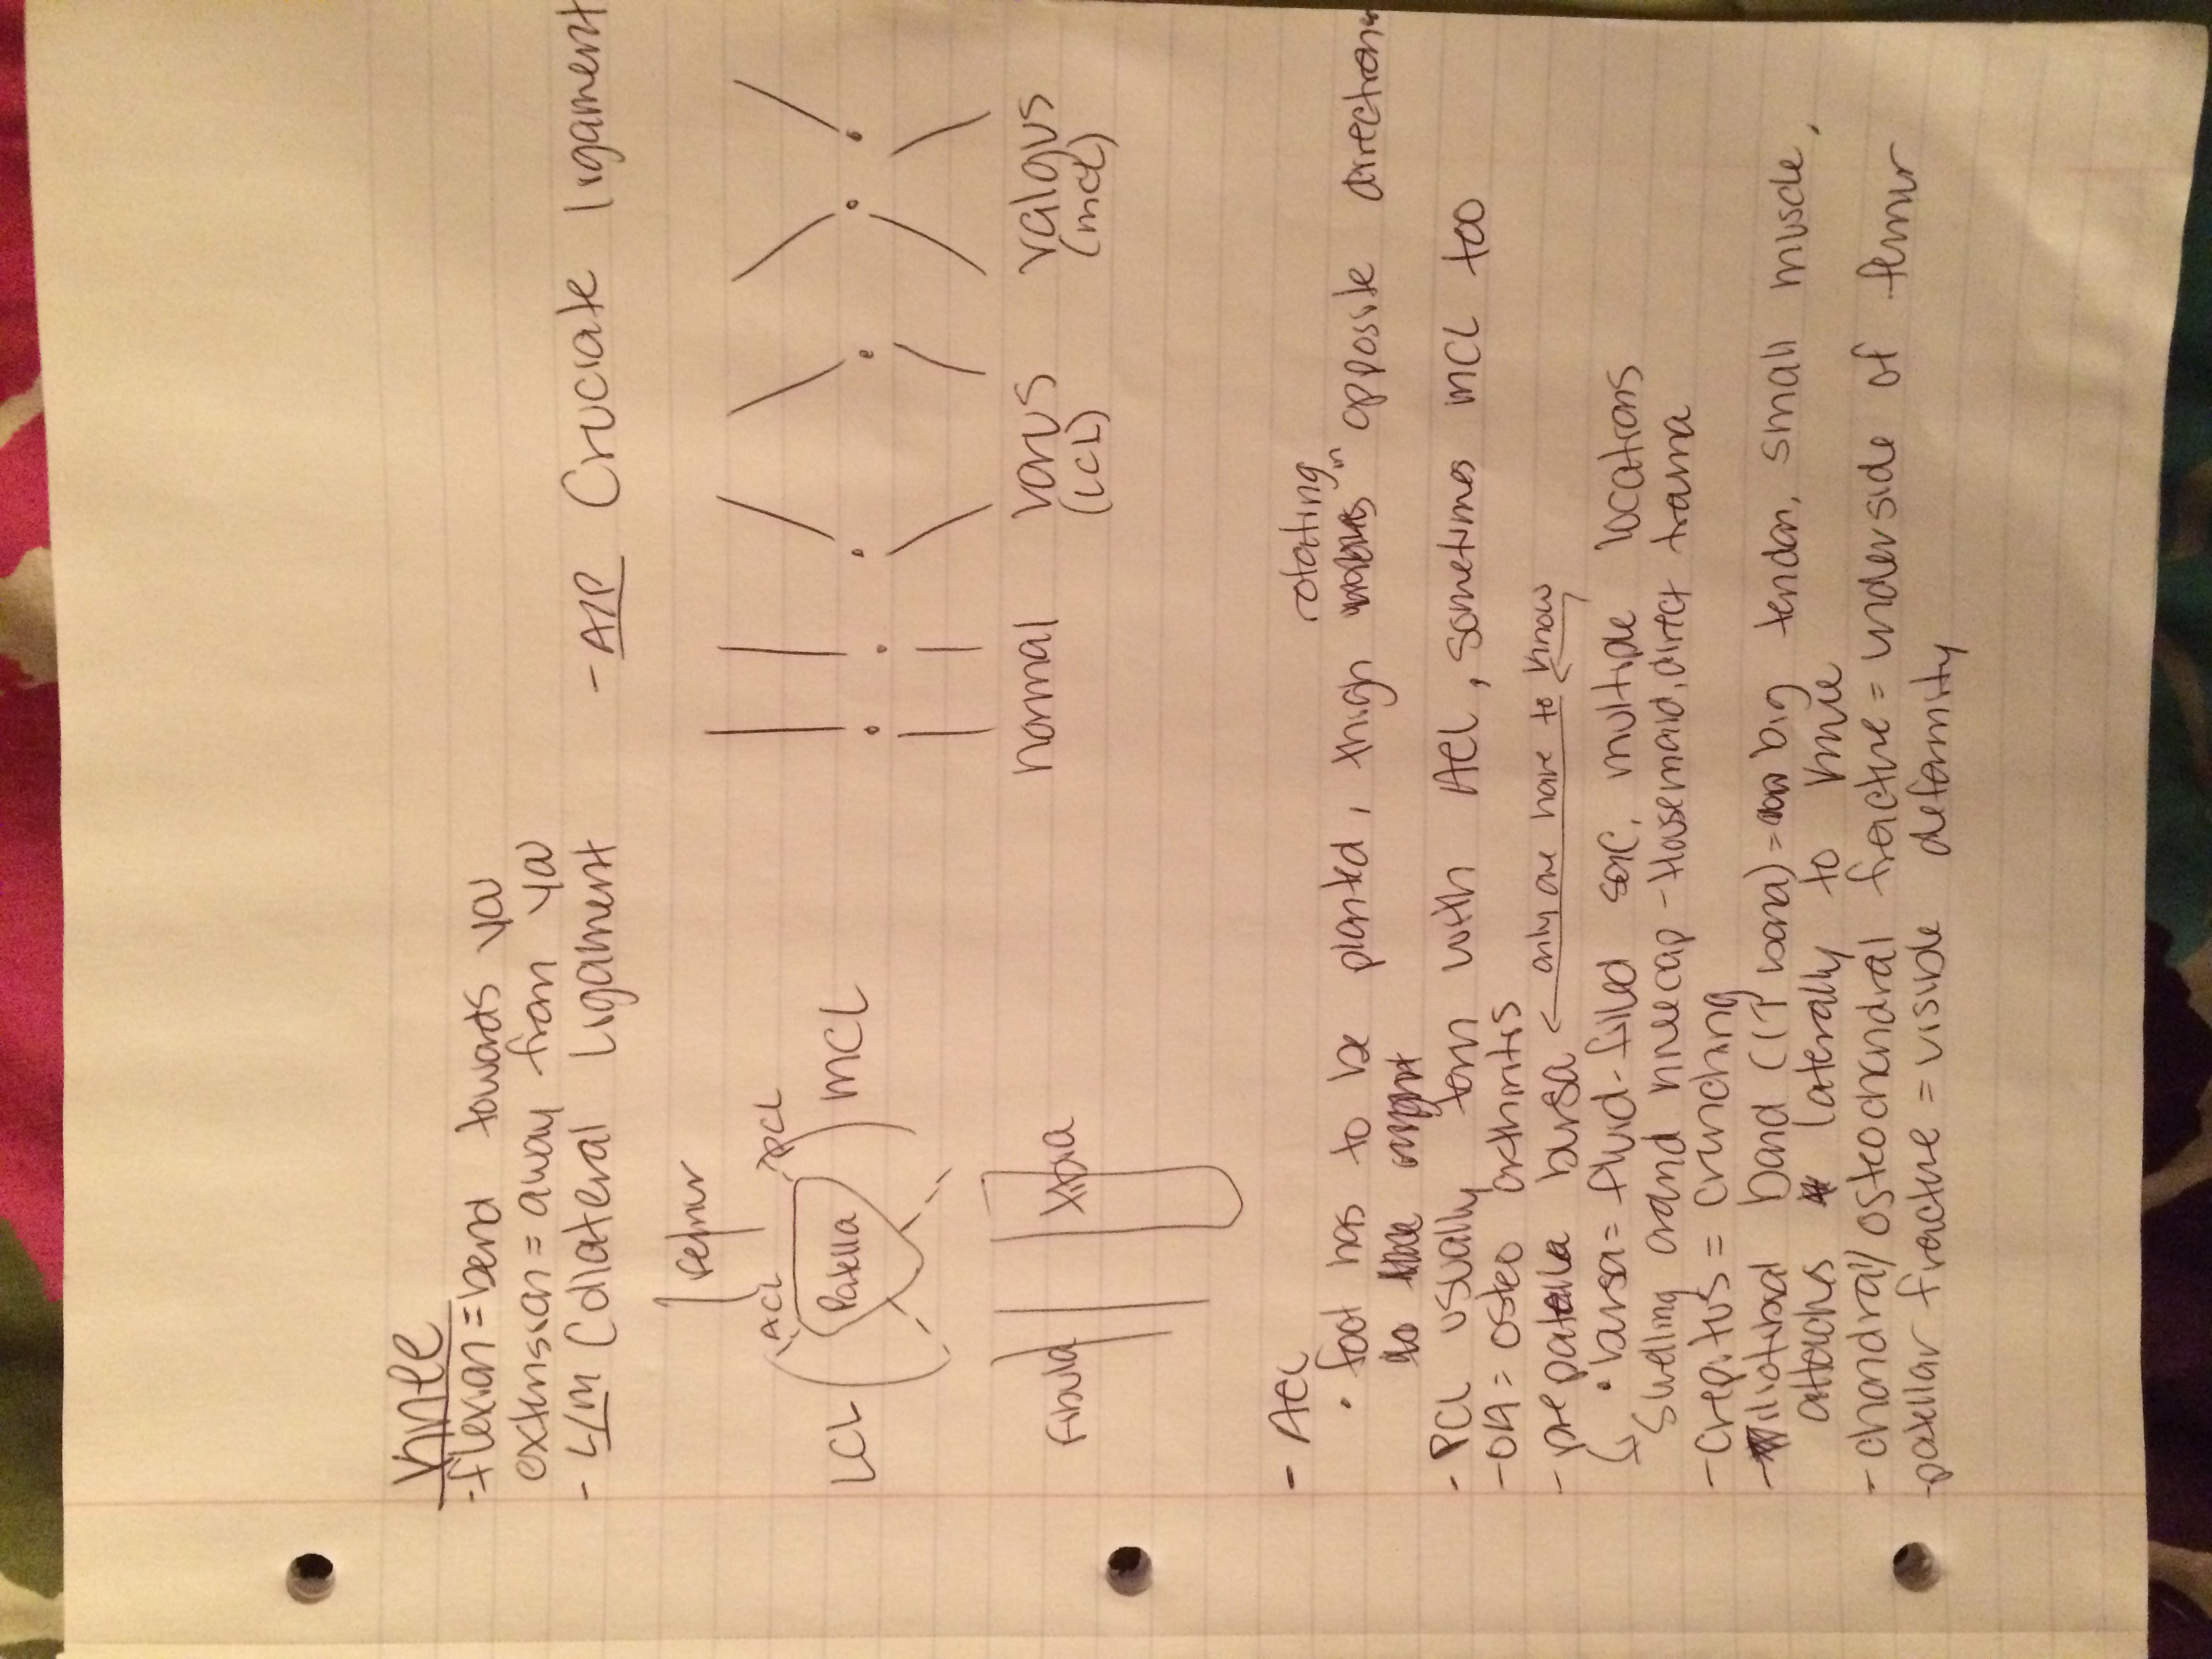 Knee
- flexion = bend towards you
extension = away from ya
- L/M Collateral Ligament
- A/P Cruciate ligament
femur
ACL
PCL
LCL
Patella
MCL
Fibula
tibia
normal
varus
(LCL)
valgus
(mcl)
- ACL
rotating
• foot has to be planted, thigh in opposite directions
- PCL usually torn with ACL, sometimes MCL too
- OA = osteo arthritis
- pre patella bursa ← only one have to know
• bursa = fluid-filled sac, multiple locations
↳ Swelling around kneecap - Housemaid, direct trama
- Crepitus = crunching
- iliotibial band (IT band) = big tendon, small muscle,
attachs laterally to knee
- chondral/osteochondral fracture = underside of femur
- patellar fracture = visible deformity